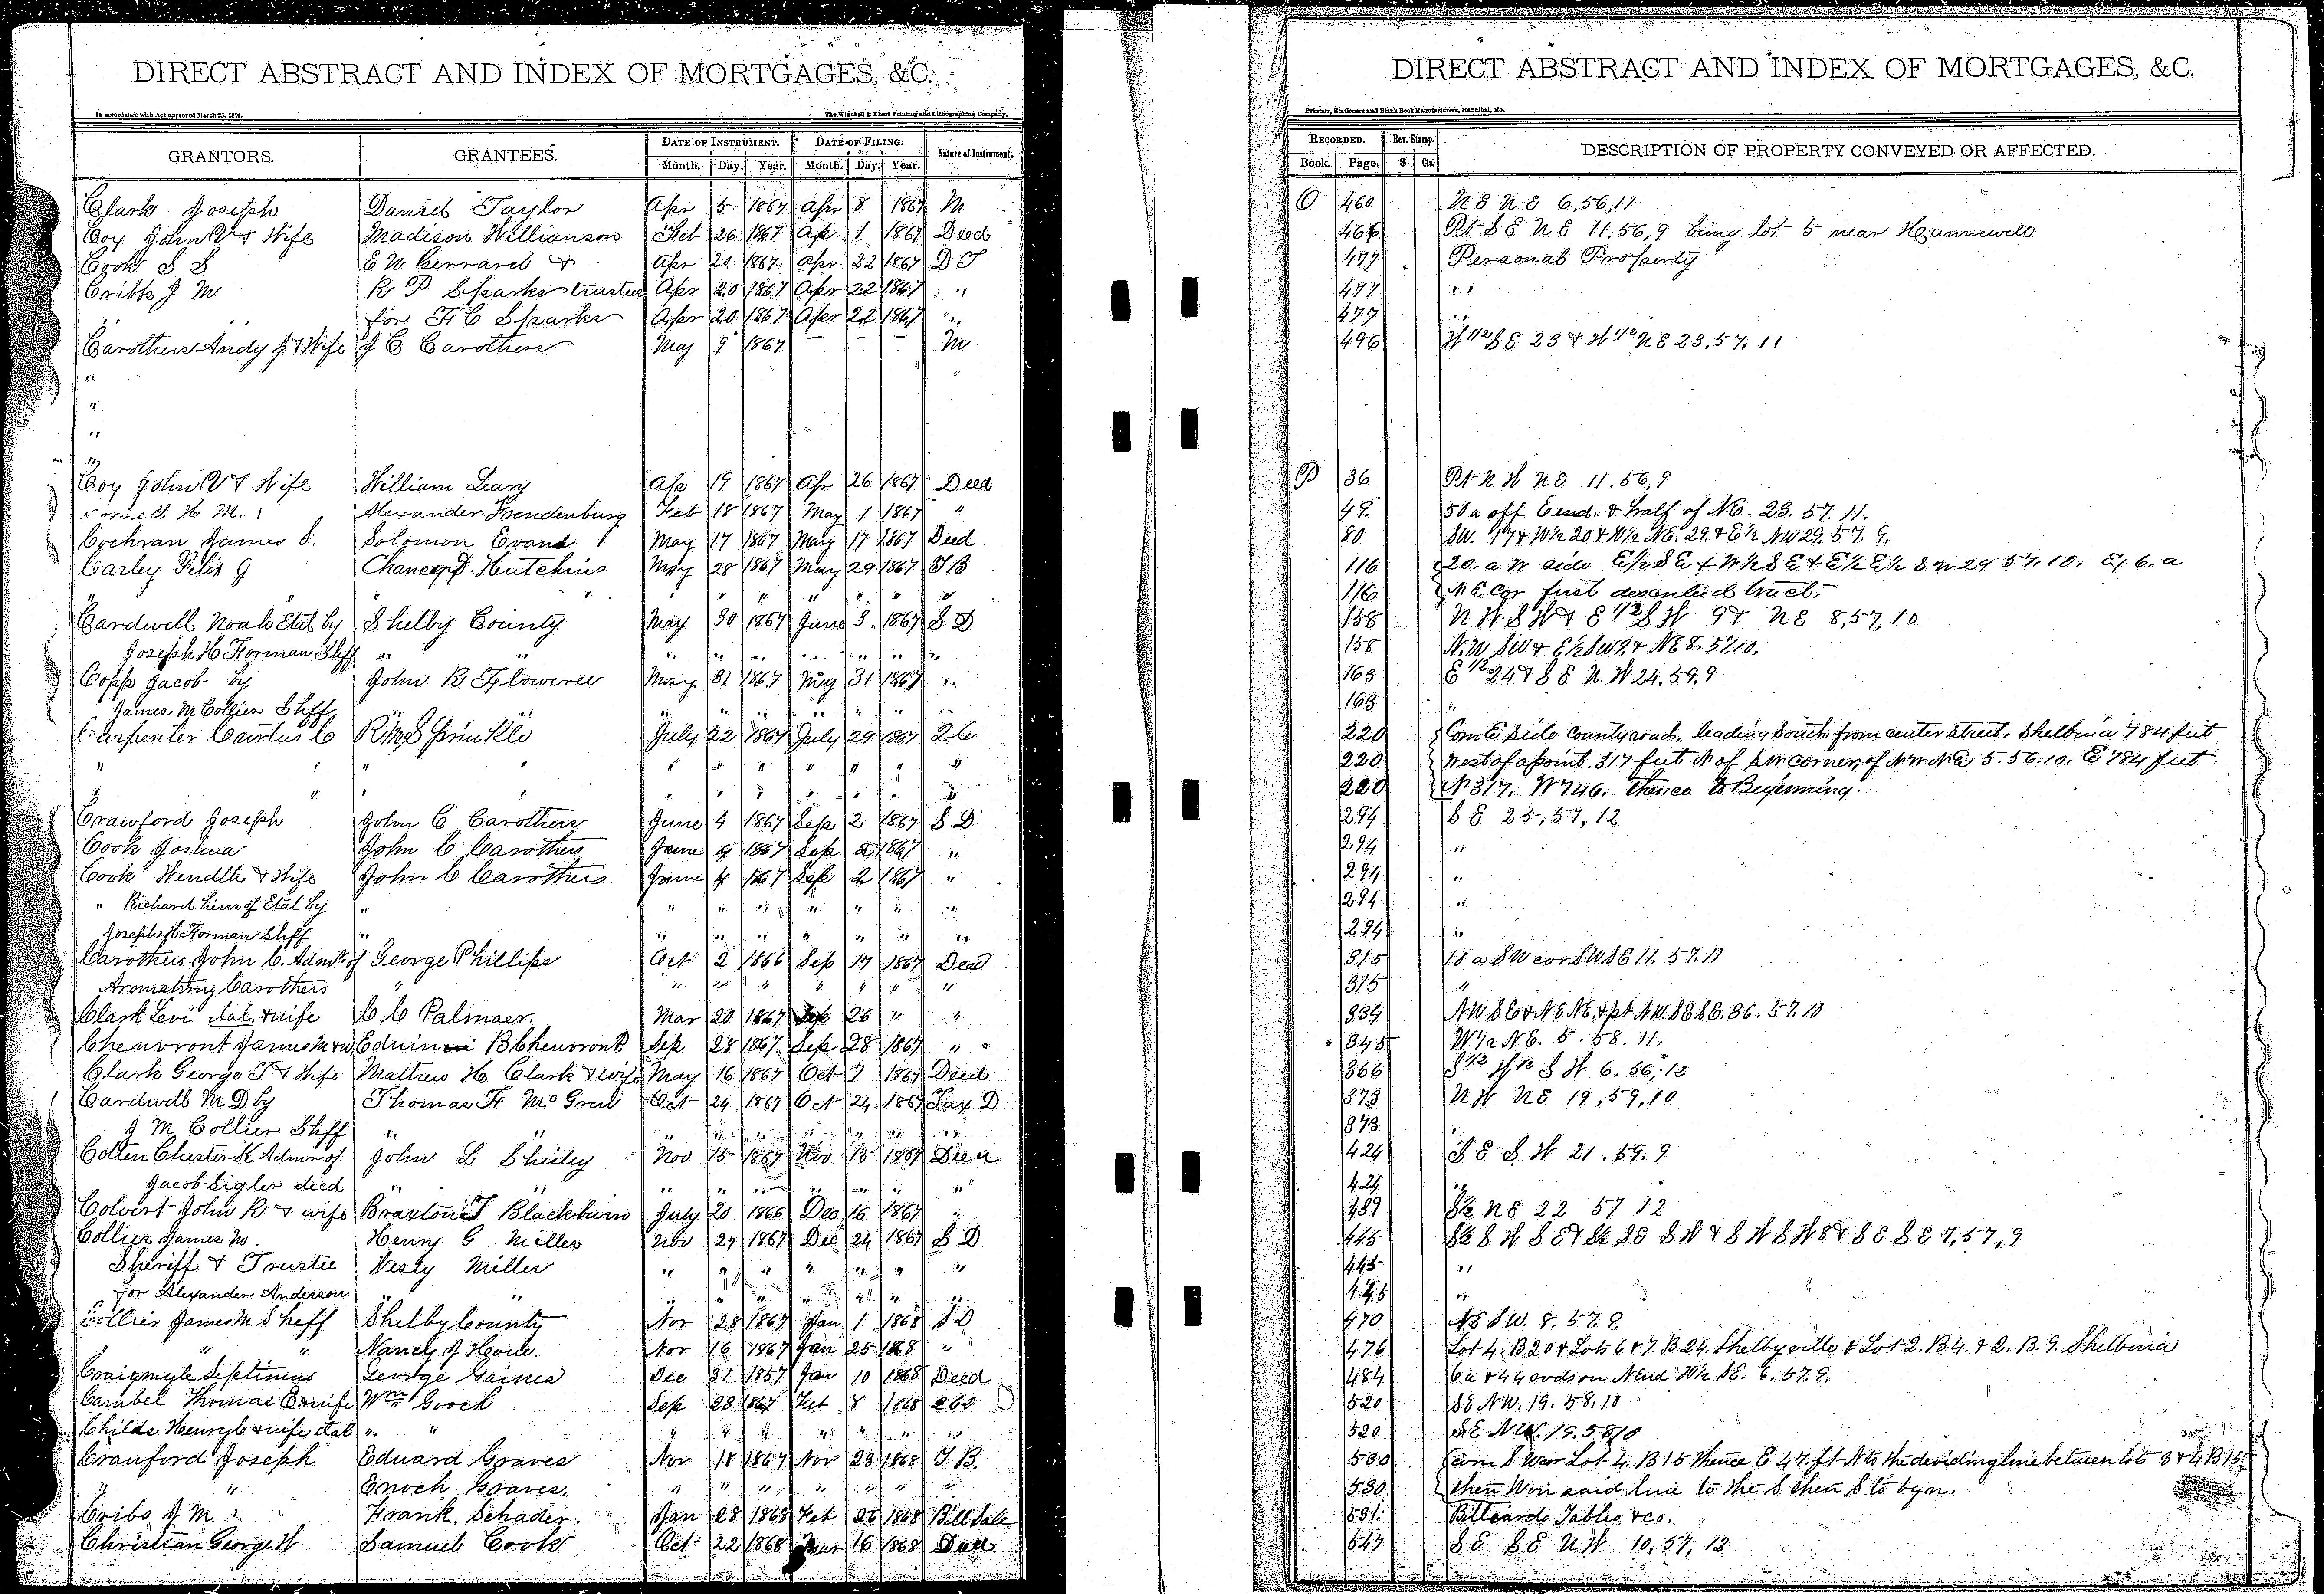 DIRECT ABSTRACT AND INDEX OF MORTGAGES, &C.
In accordance with Act approved March 25, 1870. The Winchell & Ebert Printing and Lithographing Company.
GRANTORS. GRANTEES. DATE OF INSTRUMENT. DATE OF FILING. Nature of Instrument.
Month. Day. Year. Month. Day. Year.
Clark Joseph Daniel Taylor Apr 5 1867 Apr 8 1867 M
Coy John V & Wife Madison Willianson Feb 26 1867 Ap 1 1867 Deed
Cook S S E W Gerrard & Apr 20 1867 Apr 22 1867 D T
Cribbs J M R P Sparks trustee Apr 20 1867 Apr 22 1867 "
" " for F C Sparks Apr 20 1867 Apr 22 1867 "
Carothers Andy J & Wife J C Carothers May 9 1867 – – – M
"
"
"
"
Coy John V & Wife William Leary Ap 19 1867 Apr 26 1867 Deed
Cornell H M. Alexander Frendenburg Feb 18 1867 May 1 1867 "
Cochran James S. Solomon Evans May 17 1867 May 17 1867 Deed
Carley Felix J Chancey D. Hutchins May 28 1867 May 29 1867 T B
" " " " " " " " "
Cardwell Noah Etal by Shelby County May 30 1867 June 3 1867 S D
Joseph H Forman Shff " " " " " " " " "
Copp Jacob by John R Flowerree May 31 1867 May 31 1867 "
James M Collier Shff " " " " " " " "
Carpenter Curtus C R M Sprinkle July 22 1867 July 29 1867 2 C
" " " " " " " " " "
" " " " " " " " " "
Crawford Joseph John C Carothers June 4 1867 Sep 2 1867 S D
Cook Joshua John C Carothers June 4 1867 Sep 2 1867 "
Cook Hendth & Wife John C Carothers June 4 1867 Sep 2 1867 "
" Richard heirs of Etal by " " " " " " " "
Joseph H Forman Shff " " " " " " " "
Carothers John C. Admr of George Phillips Oct 2 1866 Sep 17 1867 Deed
Aromstrong Carothers " " " " " " " "
Clark Levi etal & wife C C Palmaer. Mar 20 1867 Sep 26 " "
Chenvront James M & w Edwin B Chenvront Sep 28 1867 Sep 28 1867 "
Clark George T & Wife Mathew H Clark & wife May 16 1867 Oct 7 1867 Deed
Cardwell M D by Thomas F McGrew Oct 24 1867 Oct 24 1867 Tax D
J M Collier Shff " " " " " " " " "
Colten Chester K Admr of John L Shirley Nov 15 1867 Nov 15 1867 Deed
Jacob Sigler decd " " " " " " " " "
Colvert John R & wife Braxton T Blackburn July 20 1866 Dec 16 1867 "
Collier James M. Henry G Miller Nov 27 1867 Dec 24 1867 S D
Sheriff & Trustee Wesly Miller " " " " " " "
for Alexander Anderson " " " " " " " " "
Collier James M Sheff Shelby County Nov 28 1867 Jan 1 1868 S D
" " " Nancy J Howe. Nov 16 1867 Jan 25 1868 "
Craigmyle Septimus George Gaines Dec 31 1857 Jan 10 1868 Deed
Cambel Thomas E & wife Wm Gooch Sep 28 1867 Feb 8 1868
Childs Henry C & wife etal " " " " " " " " "
Crawford Joseph Eduard Graves Nov 18 1867 Nov 23 1868 T. B.
" " Enoch Graves. " " " " " " "
Cribs J M Frank. Schader. Jan 28 1868 Feb 26 1868 Bill Sale
Christian George W Samuel Cook Oct 22 1868 Mar 16 1868 Deed
DIRECT ABSTRACT AND INDEX OF MORTGAGES, &C.
Printers, Stationers and Blank Book Manufacturers, Hannibal, Mo.
RECORDED. Rev. Stamp. DESCRIPTION OF PROPERTY CONVEYED OR AFFECTED.
Book. Page. $ Cts.
O 460 N E N E 6,56,11
466 Pt S E N E 11,56,9 being lot 5 near Hunnewell
477 Personal Property
477 "
477 "
496 W 1/2 S E 23 & W 1/2 N E 23,57,11
P 36 Pt N W N E 11.56,9
49. 50 a off E end & half of NE. 23. 57. 11.
80 SW. 17 & W½ 20 & W½ NE. 29. & E½ NW 29. 57. 9.
116 20. a W side E½ SE & W½ SE & E½ E½ SW 29 57. 10. Ex 6. a
116 N E Cor first described tract.
158 N W S W & E 1/2 S W 9 & N E 8,57,10
158 N.W SW & E½ SW 9. & NE 8. 57 10.
163 E 1/2 24 & S E N W 24,59,9
163 "
220 Com E side County road, leading South from center street, Shelbina 784 feet
220 West of a point. 317 feet N of SW corner of NW NE 5. 56. 10. E 784 feet
220 N 317. W 746. thence to Beginning.
294 S E 25,57,12
294 "
294 "
294 "
294 "
315 18 a SW cor SW SE 11. 57. 11
315 "
334 NW SE & NE NE. & pt NW. SE SE. 36. 57. 10
345 W½ NE. 5. 58. 11.
366 S 1/2 W 1/2 S W 6. 56, 12
373 N W N E 19,59,10
373 "
424 S E S W 21.59.9
424 "
439 S½ N E 22 57 12
445 S½ S W S E & S½ S E S W & S W S W 8 & S E S E 7,57,9
445 "
445 "
470 NE SW. 8. 57. 9.
476 Lot 4. B 20 & Lots 6 & 7. B 24. Shelbyville & Lot 2. B 4. & 2. B. 9. Shelbina
484 6 a & 44 rods on N end W½ SE. 6. 57. 9.
520 SE NW. 19. 58. 10
520 SE NW. 19. 58 10
530 com S W cor Lot 4. B 15 thence E 47. ft N to the devidingline between lots 3 & 4 B 15
530 then W on said line to the S then S to bgn.
531. Billiards Tables &co.
547 S E S E N W 10, 57, 12